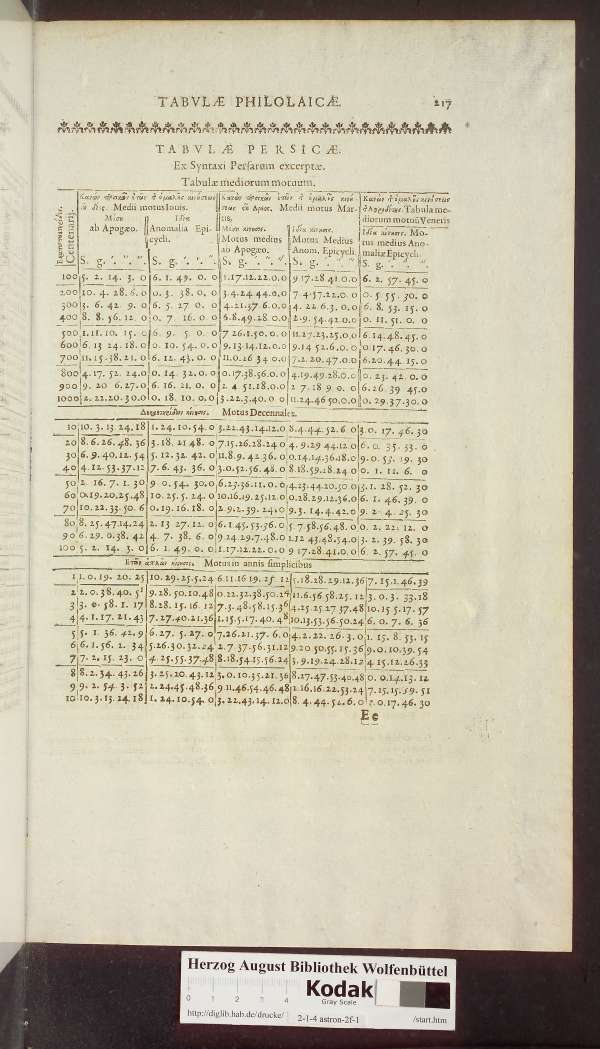 TABVLÆ PHILOLAICÆ. 217
TABVLÆ PERSICÆ.
Ex Syntaxi Persarum excerptæ.
Tabulæ mediorum motuum.
Medii motus Iouis. Medii motus Mar- Tabula me-
tis. diorum motuũ Veneris
ab Apogæo. Anomalia Epi- Motus medius Motus Medius Mo-
cycli. ab Apogæo. Anom. Epicycli. tus medius Ano-
maliæ Epicycli.
Centenarij. S. g. S. g. S. g. S. g. S. g.
100 5. 2. 14. 3. 0 6. 1. 49. 0. 0 1.17.12.22.0.0 9.17.28.41.0.0 6. 2. 57. 45. 0
200 10. 4. 28. 6. 0 0. 3. 38. 0. 0 3.4.24.44.0.0 7.4.57.22.0.0 0. 5. 55. 30. 0
300 3. 6. 42. 9. 0 6. 5. 27. 0. 0 4.21.37.6.0.0 4.22.6.3.0.0 6. 8. 53. 15. 0
400 8. 8. 56. 12. 0 0. 7. 16. 0. 0 6.8.49.28.0.0 2.9.54.42.0.0 0. 11. 51. 0. 0
500 1. 11. 10. 15. 0 6. 9. 5. 0. 0 7.26.1.50.0.0 11.27.23.25.0.0 6.14.48.45. 0
600 6. 13. 24. 18. 0 0. 10. 54. 0. 0 9.13.14.12.0.0 9.14.52.6.0.0 0.17.46.30. 0
700 11. 15. 38. 21. 0 6. 12. 43. 0. 0 11.0.26.34.0.0 7.2.20.47.0.0 6.20.44.15. 0
800 4. 17. 52. 24. 0 0. 14. 32. 0. 0 0.17.38.56.0.0 4.19.49.28.0.0 0. 23. 42. 0. 0
900 9. 20. 6. 27. 0 6. 16. 21. 0. 0 2.4.51.18.0.0 2.7.18.9.0.0 6.26.39.45.0
1000 2. 22. 20. 30. 0 0. 18. 10. 0. 0 3.22.3.40.0.0 11.24.46.50.0.0 0. 29. 37. 30. 0
Motus Decennales.
10 10. 3. 13. 24. 18 1. 24. 10. 54. 0 3.22.43.14.12.0 8.4.44.52.6.0 3. 0. 17. 46. 30
20 8. 6. 26. 48. 36 3. 18. 21. 48. 0 7.15.26.28.24.0 4.9.29.44.12.0 6. 0. 35. 33. 0
30 6. 9. 40. 12. 54 5. 12. 32. 42. 0 11.8.9.42.36.0 0.14.14.36.18.0 9. 0. 53. 19. 30
40 4. 12. 53. 37. 12 7. 6. 43. 36. 0 3.0.52.56.48.0 8.18.59.28.24.0 0. 1. 11. 6. 0
50 2. 16. 7. 1. 30 9. 0. 54. 30. 0 6.23.36.11.0.0 4.23.44.20.30.0 3. 1. 28. 52. 30
60 0. 19. 20. 25. 48 10. 25. 5. 24. 0 10.16.19.25.12.0 0.28.29.12.36.0 6. 1. 46. 39. 0
70 10. 22. 33. 50. 6 0. 19. 16. 18. 0 2.9.2.39.24.0 9.3.14.4.42.0 9. 2. 4. 25. 30
80 8. 25. 47. 14. 24 2. 13. 27. 12. 0 6.1.45.53.36.0 5.7.58.56.48.0 0. 2. 22. 12. 0
90 6. 29. 0. 38. 42 4. 7. 38. 6. 0 9.24.29.7.48.0 1.12.43.48.54.0 3. 2. 39. 58. 30
100 5. 2. 14. 3. 0 6. 1. 49. 0. 0 1.17.12.22.0.0 9.17.28.41.0.0 6. 2. 57. 45. 0
Motus in annis simplicibus
1 1. 0. 19. 20. 25 10. 29. 25. 5. 24 6.11.16.19.25.12 5.18.28.29.12.36 7. 15. 1. 46. 39
2 2. 0. 38. 40. 51 9. 28. 50. 10. 48 0.22.32.38.50.24 11.6.56.58.25.12 3. 0. 3. 33. 18
3 3. 0. 58. 1. 17 8. 28. 15. 16. 12 7.3.48.58.15.36 4.25.25.27.37.48 10. 15. 5. 17. 57
4 4. 1. 17. 21. 43 7. 27. 40. 21. 36 1.15.5.17.40.48 10.13.53.56.50.24 6. 0. 7. 6. 36
5 5. 1. 36. 42. 9 6. 27. 5. 27. 0 7.26.21.37.6.0 4.2.22.26.3.0 1. 15. 8. 53. 15
6 6. 1. 56. 2. 34 5. 26. 30. 32. 24 2.7.37.56.31.12 9.20.50.55.15.36 9. 0. 10. 39. 54
7 7. 2. 15. 23. 0 4. 25. 55. 37. 48 8.18.54.15.56.24 3.9.19.24.28.12 4. 15. 12. 26. 33
8 8. 2. 34. 43. 26 3. 25. 20. 43. 12 3.0.10.35.21.36 8.27.47.53.40.48 0. 0. 14. 13. 12
9 9. 2. 54. 3. 52 2. 24. 45. 48. 36 9.11.46.54.46.48 2.16.16.22.53.24 7. 15. 15. 59. 51
10 10. 3. 13. 24. 18 1. 24. 10. 54. 0 3.22.43.14.12.0 8.4.44.52.6.0 3. 0. 17. 46. 30
Ee
Herzog August Bibliothek Wolfenbüttel
0 1 2 3 4
Kodak
Gray Scale
http://diglib.hab.de/drucke/ 2-1-4 astron-2f-1 /start.htm